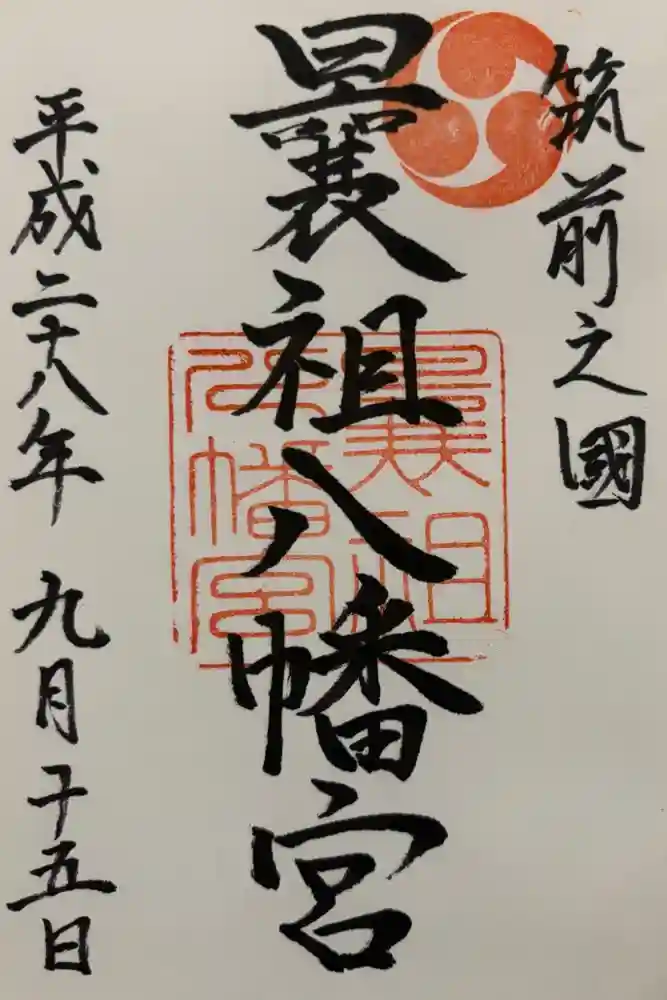 筑前之國
曩祖八幡宮
曩祖
八幡宮
平成二十八年 九月十五日